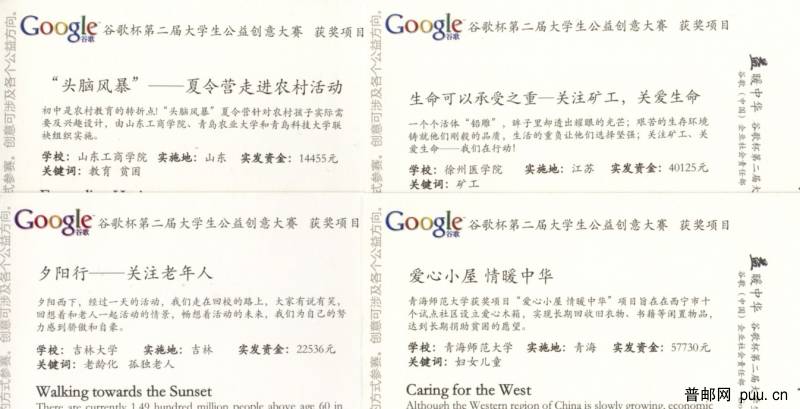 Google 谷歌 谷歌杯第二届大学生公益创意大赛 获奖项目
“头脑风暴”——夏令营走进农村活动
初中是农村教育的转折点!“头脑风暴”夏令营针对农村孩子实际需
要及兴趣设计,由山东工商学院、青岛农业大学和青岛科技大学联
袂组织实施。
学校:山东工商学院 实施地:山东 实发资金:14455元
关键词:教育 贫困
方式参赛。创意可涉及各个公益方向。
Google 谷歌杯第二届大学生公益创意大赛 获奖项目
生命可以承受之重—关注矿工,关爱生命
一个个活体“铅雕”,眸子里却透出耀眼的光芒;艰苦的生存环境
铸就他们刚毅的品质,生活的重负让他们选择坚强;关注矿工、关
爱生命——我们在行动!
学校:徐州医学院 实施地:江苏 实发资金:40125元
关键词:矿工
式参赛。创意可涉及各个公益方向。
益暖中华 谷歌杯第二届大
谷歌(中国)企业社会责任部
Google 谷歌 谷歌杯第二届大学生公益创意大赛 获奖项目
夕阳行——关注老年人
夕阳西下,经过一天的活动,我们走在回校的路上,大家有说有笑,
回想着和老人一起活动的情景,畅想着活动的未来,我们为自己的努
力感到骄傲和自豪。
学校:吉林大学 实施地:吉林 实发资金:22536元
关键词:老龄化 孤独老人
Walking towards the Sunset
There are currently 1.49 hundred million people above age 60 in
的方式参赛。创意可涉及各个公益方向。
Google 谷歌 谷歌杯第二届大学生公益创意大赛 获奖项目
爱心小屋 情暖中华
青海师范大学获奖项目“爱心小屋 情暖中华”项目旨在在西宁市十
个试点社区设立爱心木箱,实现长期回收旧衣物、书籍等闲置物品,
达到长期捐助贫困的愿望。
学校:青海师范大学 实施地:青海 实发资金:57730元
关键词:妇女儿童
Caring for the West
Although the Western region of China is slowly growing, economic
的方式参赛。创意可涉及各个公益方向。
益暖中华 谷歌杯第二届大
谷歌(中国)企业社会责任部
普邮网 puu.cn